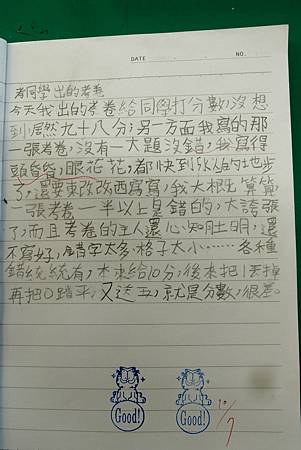 DATE NO.
考同學出的考卷
今天我出的考卷給同學打分數,沒想
到居然九十八分;另一方面我寫的那
一張考卷,沒有一大題沒錯,我寫得
頭昏昏,眼花花,都快到
的地步
了,還要東改改西寫寫,我大根上算算
一張考卷一半以上是錯的,大誇張
了,而且考卷的主人還心知肚明,還
不寫好,錯字太多,格子太小……各種
錯統統有,本來給10分,後來把1丟掉
再把0踏平,又送五,就是分數,很差。
Good! Good! 10/7